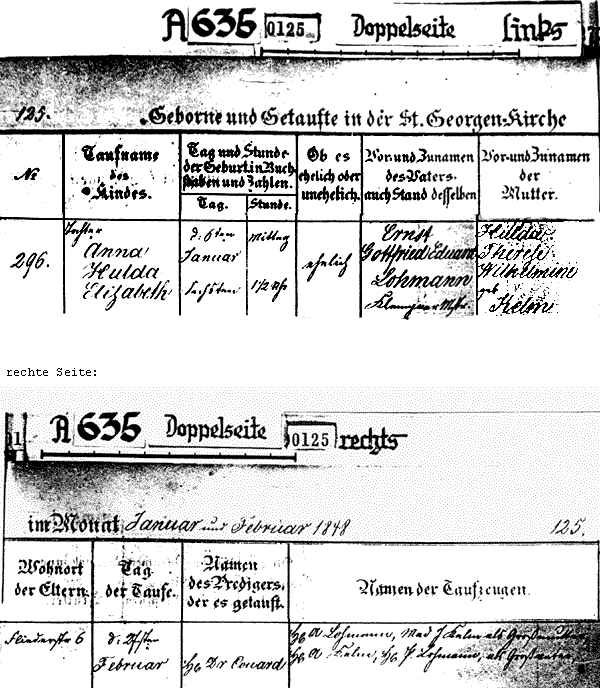 A 635 0125 Doppelseite links
125. Geborne und Getaufte in der St. Georgen-Kirche
No
Taufname
des
Kindes.
Tag und Stunde
der Geburt in Buch-
staben und Zahlen.
Tag. Stunde.
Ob es
ehelich oder
unehelich.
Vor- und Zunamen
des Vaters.
auch Stand desselben
Vor- und Zunamen
der
Mutter.
296.
Tochter
Anna
Hulda
Elizabeth
d. 6ten
Januar
Sechsten
Mittag
1/2 Uhr
ehelich
Ernst
Gottfried Eduard
Lohmann
Klempner Mstr.
Hulda
Therese
Wilhelmine
geb
Kelm
rechte Seite:
A 635 Doppelseite 0125 rechts
im Monat Januar und Februar 1848 125.
Wohnort
der Eltern.
Tag
der Taufe.
Namen
des Predigers,
der es getauft.
Namen der Taufzeugen.
Fliederstr 6
d.
Februar
H. Dr Couard
Lohmann, Mad Kelm als Großmutter
Kelm, Lohmann, als